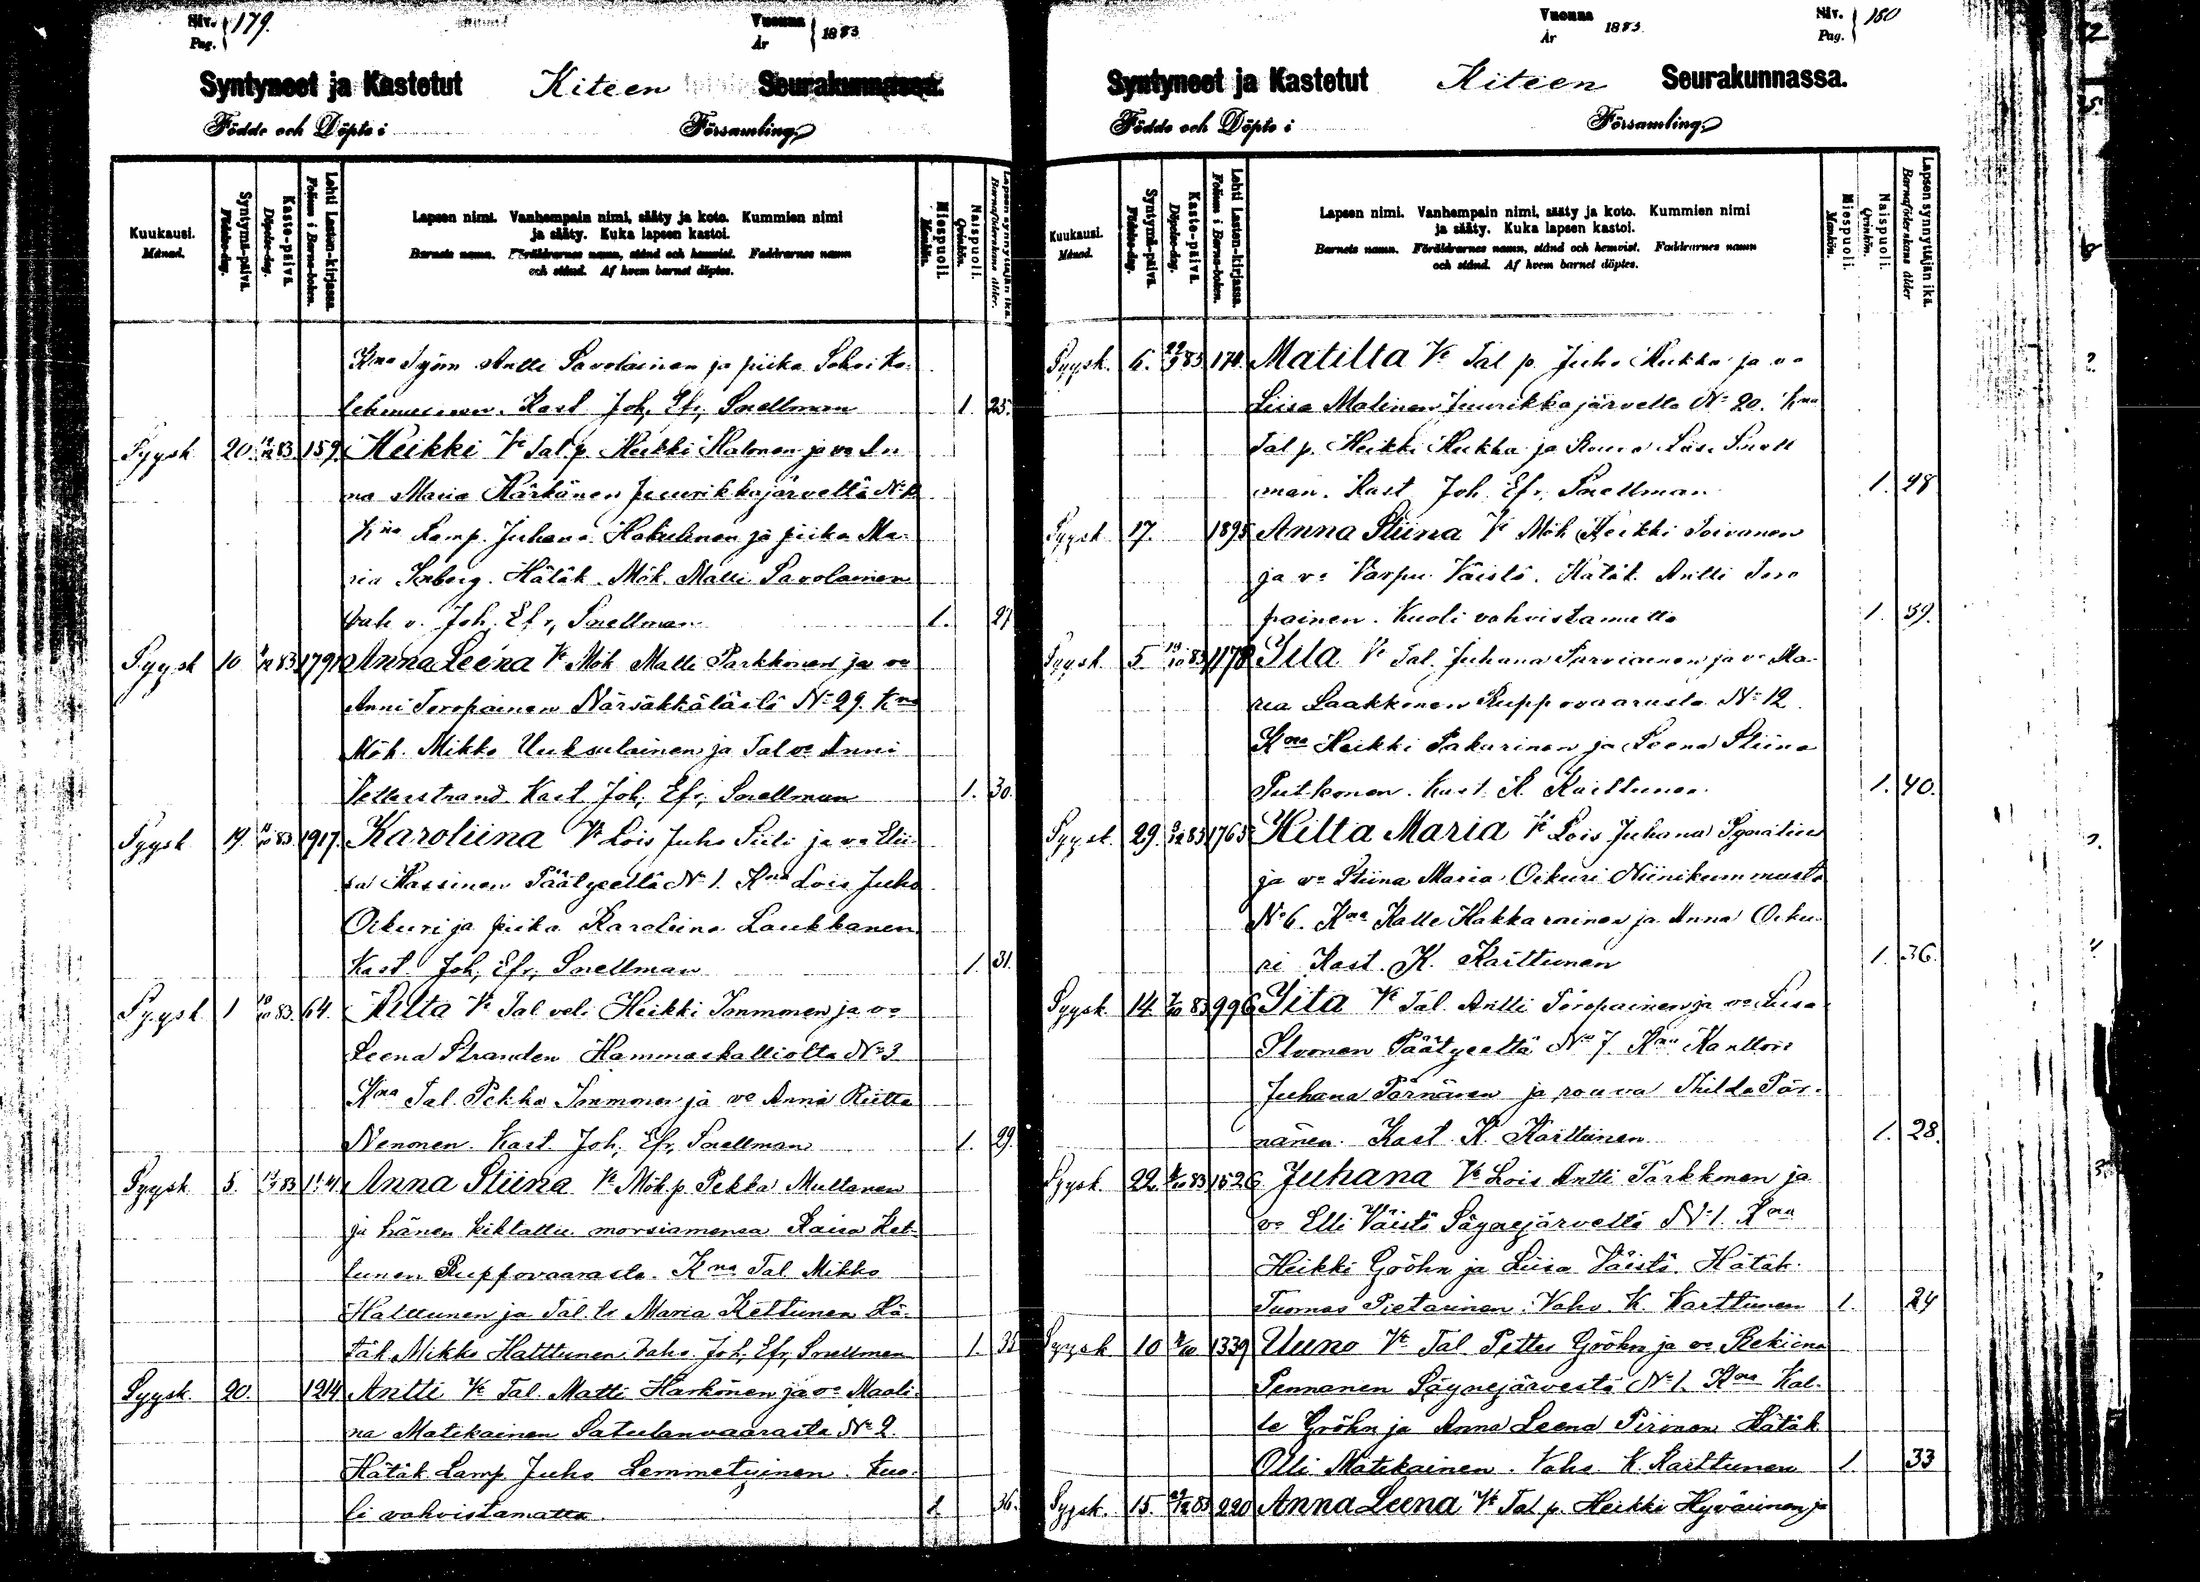 Siv. Pag. 179.
Vuonna År 1883
Syntyneet ja Kastetut Kiteen Seurakunnassa.
Födde och Döpte i Församling
Kuukausi. Månad.
Syntymä-päivä. Födelse-dag.
Kaste-päivä. Döpelse-dag.
Lehti Lasten-kirjassa. Folium i Barna-boken.
Lapsen nimi. Vanhempain nimi, sääty ja koto. Kummien nimi
ja sääty. Kuka lapsen kastoi.
Barnets namn. Föräldrarnes namn, stånd och hemvist. Faddrarnes namn
och stånd. Af hvem barnet döptes.
Miespuoli. Mankön.
Naispuoli. Qvinkön.
Lapsen synnyttäjän ikä. Barnaföderskans ålder.
Kna Työm Antti Savolainen ja piika
Kast Joh, Efr, Snellman 1. 25.
Syysk 20. 83. 159. Heikki Vt Tal p. Heikki Halonen ja vo An
na Maria Kärkänen Juurikkajärveltä No
Kna Lamp. Juhana Hakulinen ja piika Ma-
ria Hätäk. Mök. Matti Savolainen
Vah v. Joh, Efr, Snellman 1. 27
Syysk 10 83 1791 Anna Leena Vt Mök Matti Parkkonen ja vo
Anni Toropainen Närsäkkälästä No 29. Kna
Mök. Mikko Uuksulainen ja Tal vo Anni
Petterstrand Kast Joh, Efr, Snellman 1. 30.
Syysk 19. 83. 1917. Karoliina Vt Lois Juho Siili ja vo Elii-
sa Kassinen Päätyeeltä No 1. Kna Lois Juho
Oikuri ja piika Karoliina Laukkanen
Kast Joh, Efr, Snellman 1. 31.
Syysk 1 10/10 83. 64. Vt Tal vel. Heikki Ionmonen ja vo
Leena Stranden Hammaskalliolta No 3
Kna Tal. Pekka Ionmonen ja vo Anna Riitta
Nenonen. Kast Joh, Efr, Snellman 1. 29.
Syysk 5. 83 Anna Stiina Vt Mök p. Pekka Multanen
ja hänen kihlattu morsiamensa Kaisa Ket-
tunen Ruppovaarasta. Kna Tal Mikko
Halttunen ja Tal. ty Maria Kettunen Hä-
täk Mikko Halttunen. Vahv. Joh, Efr, Snellman 1. 35
Syysk. 20. 1214 Antti Vt Tal. Matti Harkönen ja vo Maali-
na Matikainen Satulanvaarasta No 2
Hätäk Lamp. Juho Lemmetyinen. Kuo-
li vahvistamatta. 1. 36.
Vuonna År 1883.
Siv. Pag. 180
Syntyneet ja Kastetut Kiteen Seurakunnassa.
Födde och Döpte i Församling
Kuukausi. Månad.
Syntymä-päivä. Födelse-dag.
Kaste-päivä. Döpelse-dag.
Lehti Lasten-kirjassa. Folium i Barna-boken.
Lapsen nimi. Vanhempain nimi, sääty ja koto. Kummien nimi
ja sääty. Kuka lapsen kastoi.
Barnets namn. Föräldrarnes namn, stånd och hemvist. Faddrarnes namn
och stånd. Af hvem barnet döptes.
Miespuoli. Mankön.
Naispuoli. Qvinkön.
Lapsen synnyttäjän ikä. Barnaföderskans ålder
Syysk. 6. 83 174. Matilta Vt Tal p. Juho Kukka ja vo
Liisa Malinen Juurikkajärveltä No 20. Kna
Tal p. Heikki Kukka ja Rouva Snell
man. Kast Joh. Efr, Snellman 1. 28
Syysk 17. 1895 Anna Stiina Vt Mök Heikki Toivanen
ja vo Varpu Väistö. Hätäk. Antti Toro
painen. Kuoli vahvistamatta 1. 39.
Syysk. 5 83 1178 Iita Vt Tal. Juhana Parviainen ja vo Ma-
ria Laakkonen Ruppovaarasta No 12.
Kna Heikki Pakarinen ja Leena Stiina
Putkonen. Kast K Karttunen. 1. 40.
Syysk. 29. 83 1763 Hilta Maria Vt Lois Juhana Ignatius
ja vo Stiina Maria Oikuri Niinikummusta
No 6. Kna Kalle Hakkarainen ja Anna Oiku-
ri Kast. K. Karttunen 1. 36.
Syysk. 14. 7/10 83 996 Iita Vt Tal. Antti Toropainen ja vo Liisa
Silvonen Päätyeeltä No 7. Kna Kanttori
Juhana Pärnänen ja rouva Thilda Pär-
nänen. Kast. K. Karttunen 1. 28.
Syysk. 22. 83 1526 Juhana Vt Lois Antti Parkkonen ja
vo Elli Väistö Säynejärveltä No 1. Kna
Heikki Gröhn ja Liisa Väistö. Hätäk.
Tuomas Pietarinen. Vahv. K. Karttunen 1. 24
Syysk 10 1339 Uuno Vt Tal Petter Gröhn ja vo Rekiina
Pennanen Säynejärvestä No 1. Kna Kal-
le Gröhn ja Anna Leena Piironen Hätäk
Olli Matikainen. Vahv. K. Karttunen 1. 33
Syysk. 15. 83 220 Anna Leena Vt Tal p. Heikki Hyvärinen ja